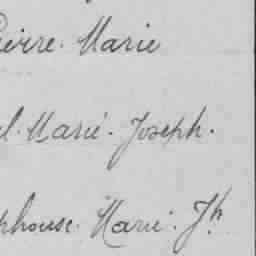 Pierre. Marie
l. Marie. Joseph.
phouse. Marie. Jh